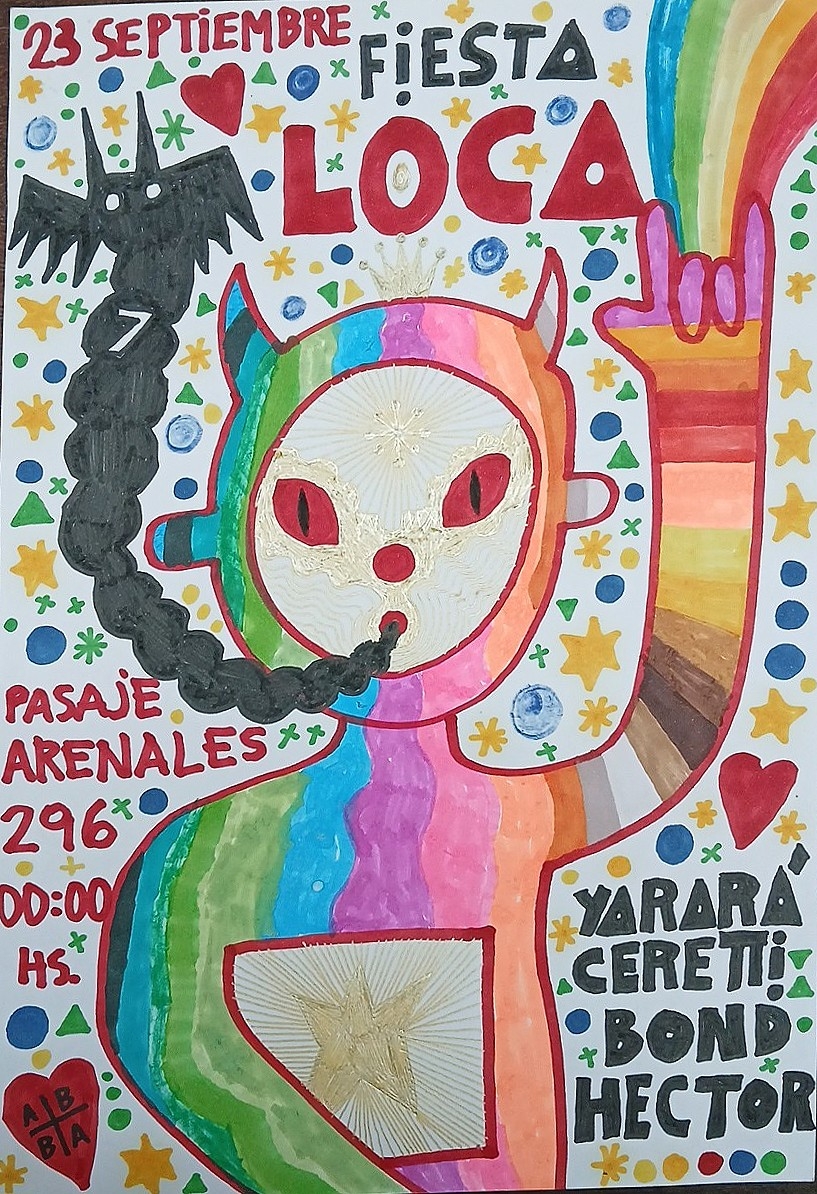 23 SEPTiEMBRE
FiESTA
LOCA
7
PASAJE
ARENALES
296
00:00
HS.
YARARÁ
CERETTi
BOND
HECTOR
A B
B A